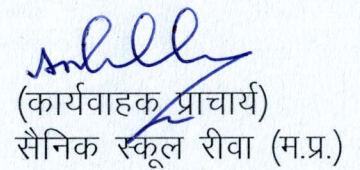 (कार्यवाहक प्राचार्य)
सैनिक स्कूल रीवा (म.प्र.)